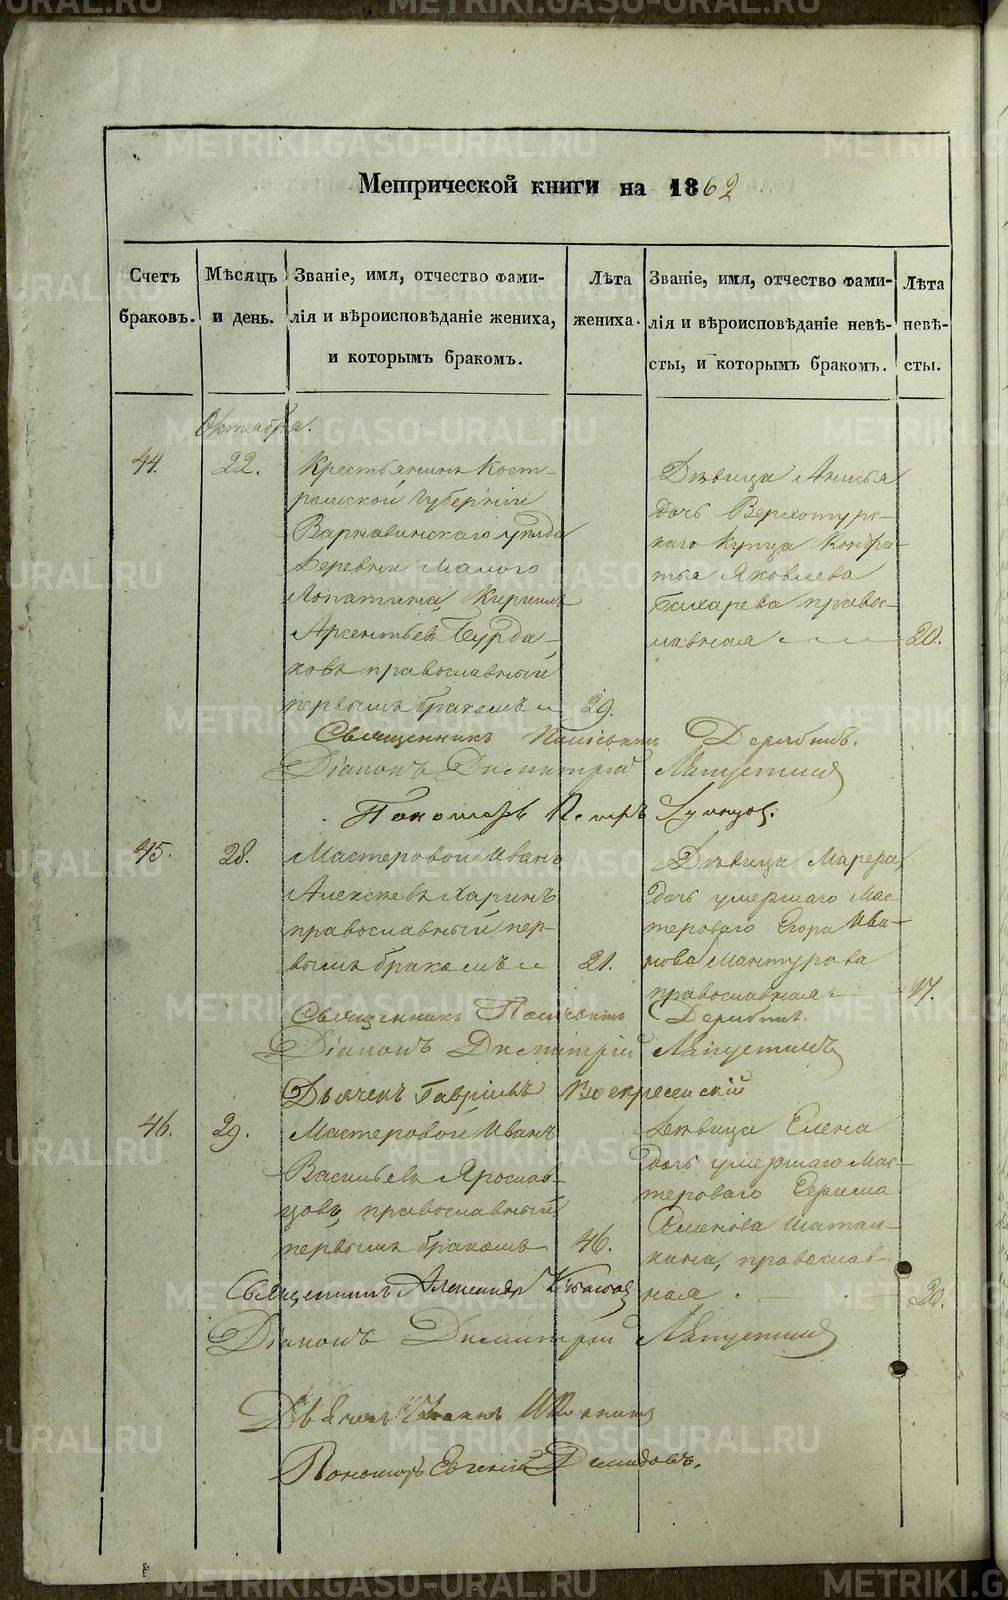 Метрической книги на 1862
Счетъ браковъ.
Мѣсяцъ и день.
Званіе, имя, отчество фами-
лія и вѣроисповѣданіе жениха,
и которымъ бракомъ.
Лѣта жениха.
Званіе, имя, отчество фами-
лія и вѣроисповѣданіе невѣ-
сты, и которымъ бракомъ.
Лѣта невѣ-
сты.
Октября.
44. 22.
Крестьянинъ Кост-
ромской Губерніи
Варнавинскаго уѣзда
Деревни Малого
Лопатина, Кирилъ
Арсентьевъ Бурда-
ковъ православный
первымъ бракомъ 29.
Дѣвица Анисья
дочь Верхотурс-
каго Купца Кондра-
тья Яковлева
Бахарева правос-
лавная 20.
Священникъ Дерябинъ.
Діаконъ Димитрій Лапустинъ
Пономарь Петръ
45. 28.
Мастеровой Иванъ
Алексѣевъ Харинъ
православный пер-
вымъ бракомъ 21.
Дѣвица Марѳа,
дочь умершаго Мас-
тероваго Егора Ива-
нова Мантурова
православная 17.
Священникъ Дерябинъ.
Діаконъ Димитрій Лапустинъ
Дьячекъ Гавріилъ Воскресенскій
46. 29.
Мастеровой Иванъ
Васильевъ Ярослав-
цовъ, православный
первымъ бракомъ 46.
Дѣвица Елена
дочь умершаго Мас-
тероваго
Семенова
православ-
ная 30.
Священникъ Александръ
Діаконъ Димитрій Лапустинъ
Дьячекъ
Пономарь Евгеній Демидовъ.
METRIKI.GASO-URAL.RU